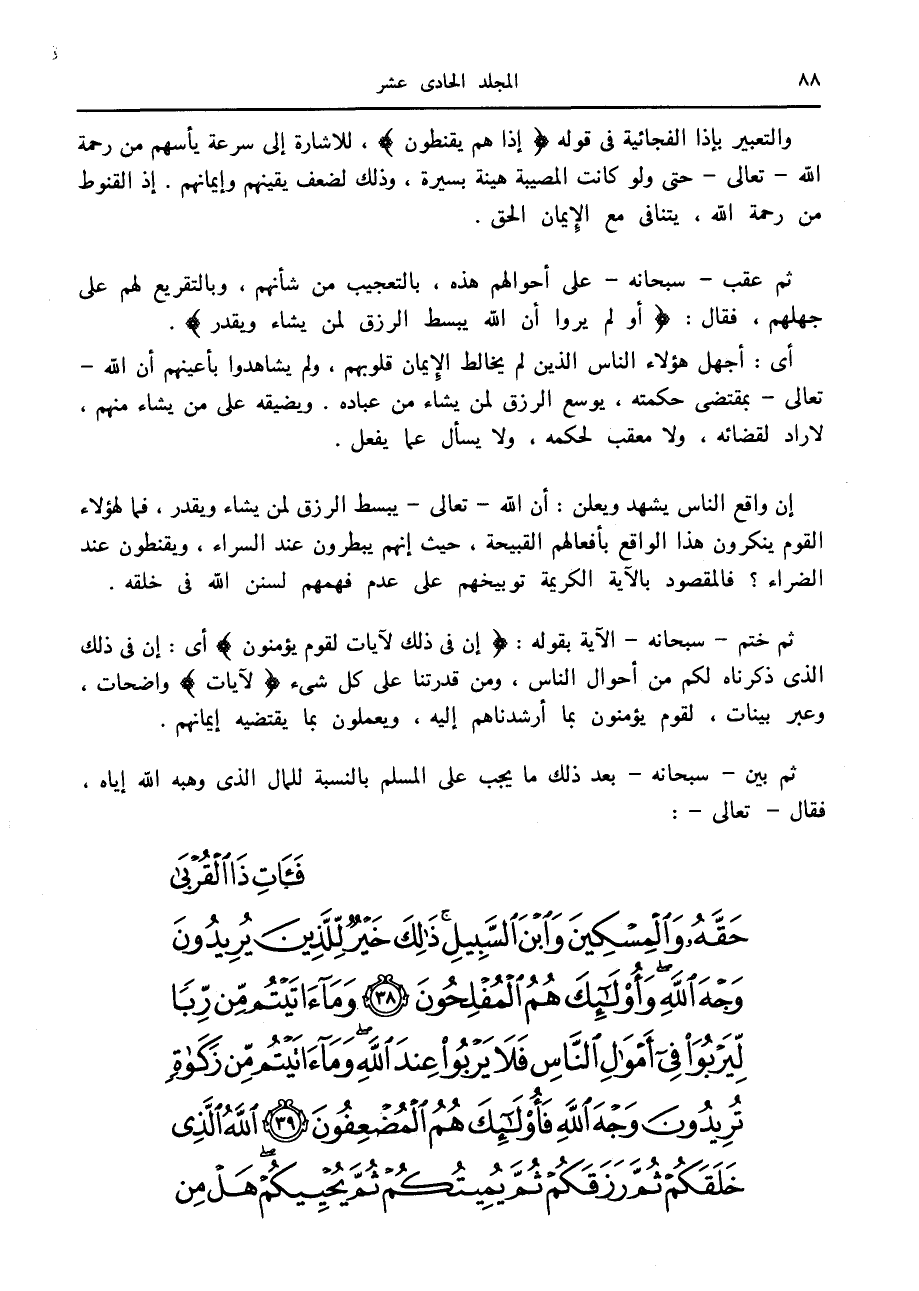 ٨٨
المجلد الحادى عشر
والتعبير بإذا الفجائية فى قوله ﴿ إذا هم يقنطون ﴾ ، للاشارة إلى سرعة يأسهم من رحمة
الله – تعالى – حتى ولو كانت المصيبة هينة بسيرة ، وذلك لضعف يقينهم وإيمانهم . إذ القنوط
من رحمة الله ، يتنافى مع الإيمان الحق .
ثم عقب – سبحانه – على أحوالهم هذه ، بالتعجيب من شأنهم ، وبالتقريع لهم على
جهلهم ، فقال : ﴿ أو لم يروا أن الله يبسط الرزق لمن يشاء ويقدر ﴾ .
أى : أجهل هؤلاء الناس الذين لم يخالط الإيمان قلوبهم ، ولم يشاهدوا بأعينهم أن الله –
تعالى – بمقتضى حكمته ، يوسع الرزق لمن يشاء من عباده . ويضيقه على من يشاء منهم ،
لاراد لقضائه ، ولا معقب لحكمه ، ولا يسأل عما يفعل .
إن واقع الناس يشهد ويعلن : أن الله – تعالى – يبسط الرزق لمن يشاء ويقدر ، فما لهؤلاء
القوم ينكرون هذا الواقع بأفعالهم القبيحة ، حيث إنهم يبطرون عند السراء ، ويقنطون عند
الضراء ؟ فالمقصود بالآية الكريمة توبيخهم على عدم فهمهم لسنن الله فى خلقه .
ثم ختم – سبحانه – الآية بقوله : ﴿ إن فى ذلك لآيات لقوم يؤمنون ﴾ أى : إن فى ذلك
الذى ذكرناه لكم من أحوال الناس ، ومن قدرتنا على كل شىء ﴿ لآيات ﴾ واضحات ،
وعبر بينات ، لقوم يؤمنون بما أرشدناهم إليه ، ويعملون بما يقتضيه إيمانهم .
ثم بين – سبحانه – بعد ذلك ما يجب على المسلم بالنسبة للمال الذى وهبه الله إياه ،
فقال – تعالى – :
فَـَٔاتِ ذَا ٱلْقُرْبَىٰ
حَقَّهُۥ وَٱلْمِسْكِينَ وَٱبْنَ ٱلسَّبِيلِ ۚ ذَٰلِكَ خَيْرٌ لِّلَّذِينَ يُرِيدُونَ
وَجْهَ ٱللَّهِ ۖ وَأُو۟لَٰٓئِكَ هُمُ ٱلْمُفْلِحُونَ ﴿٣٨﴾ وَمَآ ءَاتَيْتُم مِّن رِّبًا
لِّيَرْبُوَا۟ فِىٓ أَمْوَٰلِ ٱلنَّاسِ فَلَا يَرْبُوا۟ عِندَ ٱللَّهِ ۖ وَمَآ ءَاتَيْتُم مِّن زَكَوٰةٍ
تُرِيدُونَ وَجْهَ ٱللَّهِ فَأُو۟لَٰٓئِكَ هُمُ ٱلْمُضْعِفُونَ ﴿٣٩﴾ ٱللَّهُ ٱلَّذِى
خَلَقَكُمْ ثُمَّ رَزَقَكُمْ ثُمَّ يُمِيتُكُمْ ثُمَّ يُحْيِيكُمْ ۖ هَلْ مِن